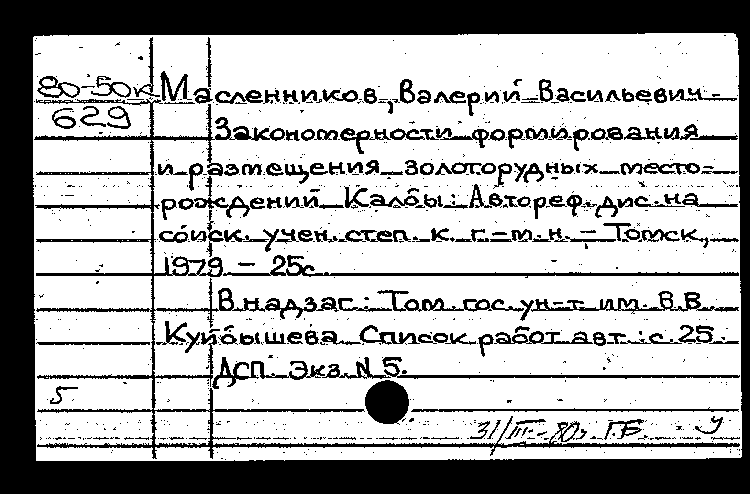 80-50к Масленников, Валерий Васильевич
629 Закономерности формирования
и размещения золоторудных место-
рождений Калбы: Автореф. дис. на
соиск. учен. степ. к. г.-м. н. - Томск,
1979 - 25с
В надзаг.: Том. гос. ун-т им. В.В.
Куйбышева. Список работ авт.: с. 25.
ДСП. Экз. N 5.
5
31/III-80г. Г.Б. У